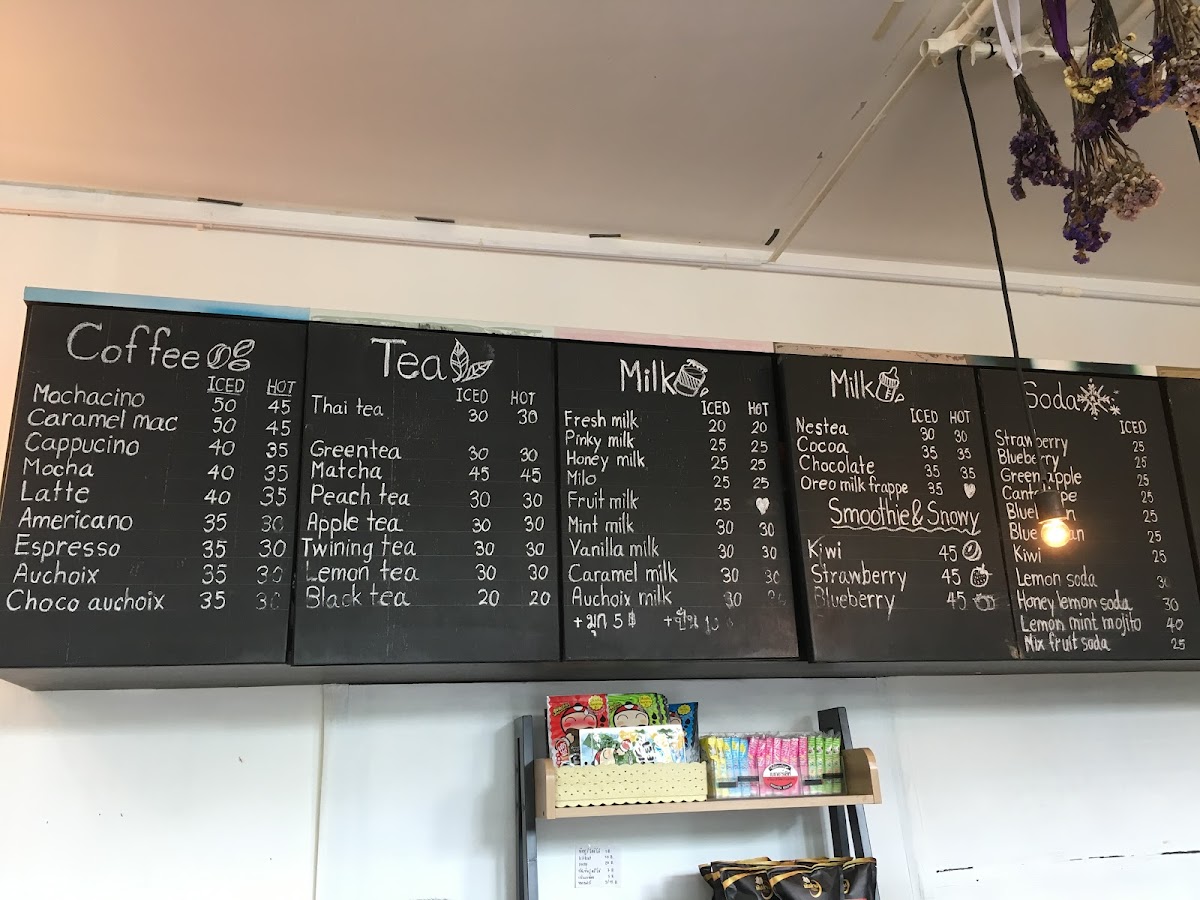 Coffee
ICED HOT
Mochacino 50 45
Caramel mac 50 45
Cappucino 40 35
Mocha 40 35
Latte 40 35
Americano 35 30
Espresso 35 30
Auchoix 35 30
Choco auchoix 35 30
Tea
ICED HOT
Thai tea 30 30
Greentea 30 30
Matcha 45 45
Peach tea 30 30
Apple tea 30 30
Twining tea 30 30
Lemon tea 30 30
Black tea 20 20
Milk
ICED HOT
Fresh milk 20 20
Pinky milk 25 25
Honey milk 25 25
Milo 25 25
Fruit milk 25
Mint milk 30 30
Vanilla milk 30 30
Caramel milk 30 30
Auchoix milk 30
+ มุก 5 ฿
Milk
ICED HOT
Nestea 30 30
Cocoa 35 35
Chocolate 35 35
Oreo milk frappe 35
Smoothie & Snowy
Kiwi 45
Strawberry 45
Blueberry 45
Soda
ICED
Strawberry 25
Blueberry 25
Green apple 25
25
25
25
Kiwi 25
Lemon soda
Honey lemon soda 30
Lemon mint mojito 40
Mix fruit soda 25